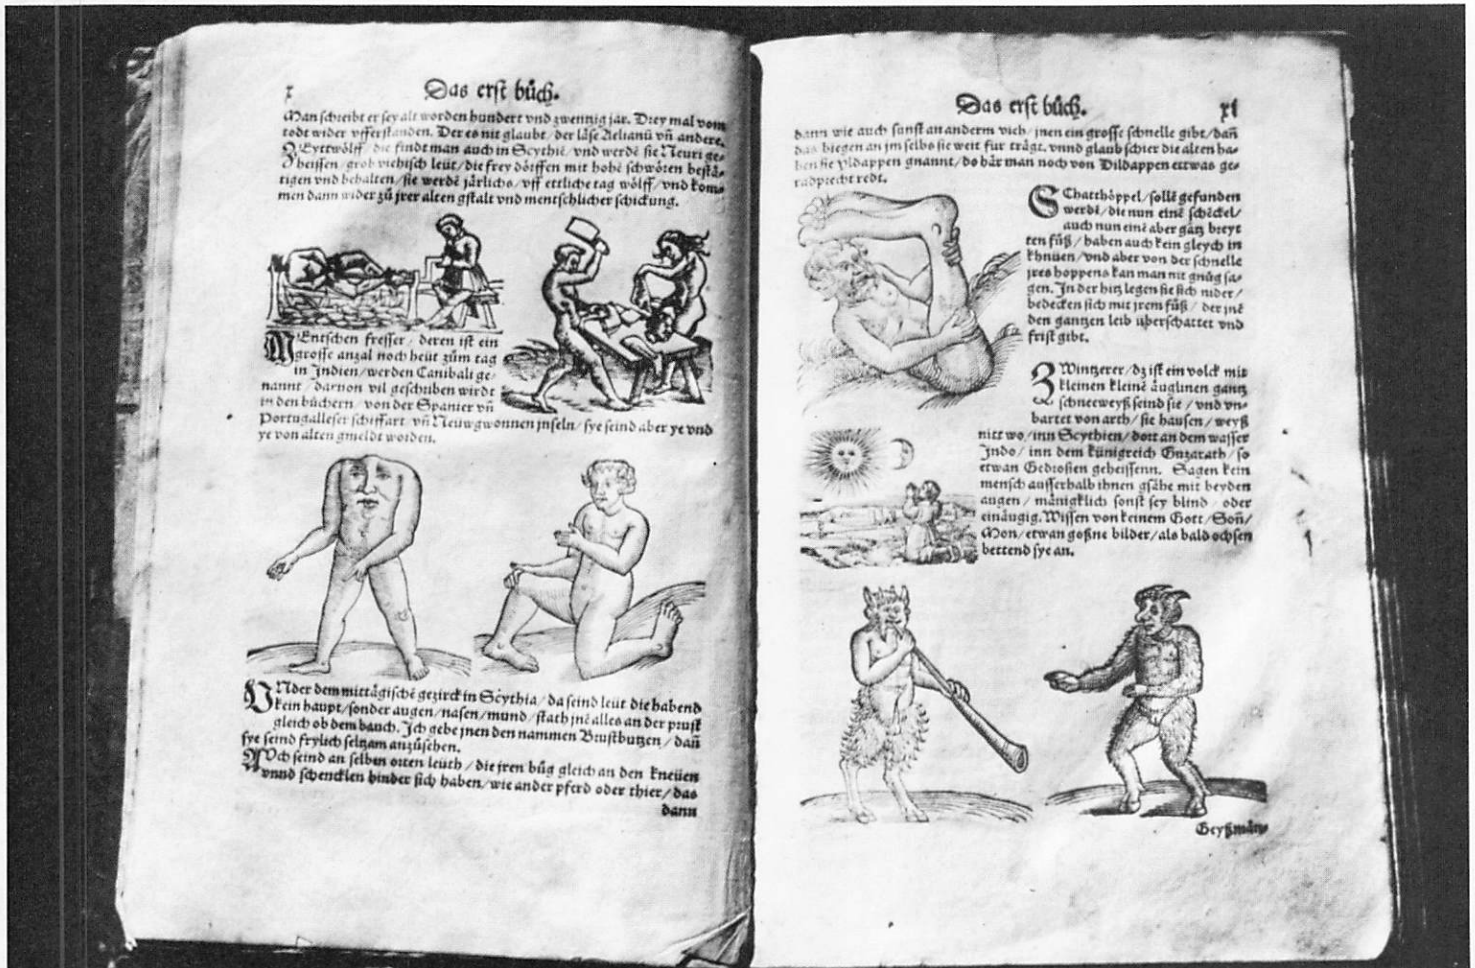 x
Das erst bůch.
Man schreibt er sey alt worden hundert vnd zwenzig jar. Drey mal vom
todt wider vfferstanden. Der es nit glaubt / der läse Aelianū vñ andere.
ZEyttwölff / die findt man auch in Scythiē / vnd werdē sie Neuri ge-
heissen / grob viehisch leüt / die frey dörffen mit hohē schwören bestä-
tigen vnd behalten / sie werdē järlichs / vff ettliche tag wölff / vnd kom-
men dann wider zů jrer alten gstalt vnd mentschlicher schickung.
MEntschen fresser / deren ist ein
grosse anzal noch heüt zům tag
in Jndien / werden Canibali ge-
nannt / daruon vil geschriben wirdt
in den büchern / von der Spanier vñ
Portugalleser schiffart / vñ Neuwgwonnen jnseln / sye seind aber ye vnd
ye von alten gmeldt worden.
VNder dem mittägischē gezirck in Scythia / da seind leüt die habend
kein haupt / sonder augen / nasen / mund / stath jnē alles an der prust
gleich ob dem bauch. Jch gebe jnen den nammen Brustbutzen / dañ
sye seind frylich seltzam anzůsehen.
AVch seind an selben orten leüth / die jren bůg gleich an den kneüen
vnnd schencklen hinder sich haben / wie ander pferd oder thier / das
dann
Das erst bůch.
xi
dann wie auch sunst an anderm vich / jnen ein grosse schnelle gibt / dañ
das biegen an jm selbs sie weit fur trägt. vnnd glaub schier die alten ha-
ben sie yldappen gnannt / do här man noch von Dildappen ettwas ge-
radprecht redt.
SChatthöppel / sollē gefunden
werdē / die nun einē schēckel /
auch nun einē aber gātz breyt
ten fůß / haben auch kein gleych in
khnüen / vnd aber von der schnelle
jres hoppens kan man nit gnůg sa-
gen. Jn der hitz legen sie sich nider /
bedecken sich mit jrem fůß / der jnē
den gantzen leib überschattet vnd
frist gibt.
ZWintzerer / dz ist ein volck mit
kleinen kleinē äuglinen gantz
schneeweyß seind sie / vnd vn-
bartet von arth / sie hausen / weyß
nitt wo / inn Scythien / dort an dem wasser
Jndo / inn dem künigreich Guzarath / so
etwan Gedrosien geheissenn. Sagen kein
mensch ausserhalb ihnen gsähe mit beyden
augen / mänigklich sonst sey blind / oder
einäugig. Wissen von keinem Gott / Soñ /
Mon / etwan goßne bilder / als bald ochsen
bettend sye an.
Geyßmän-